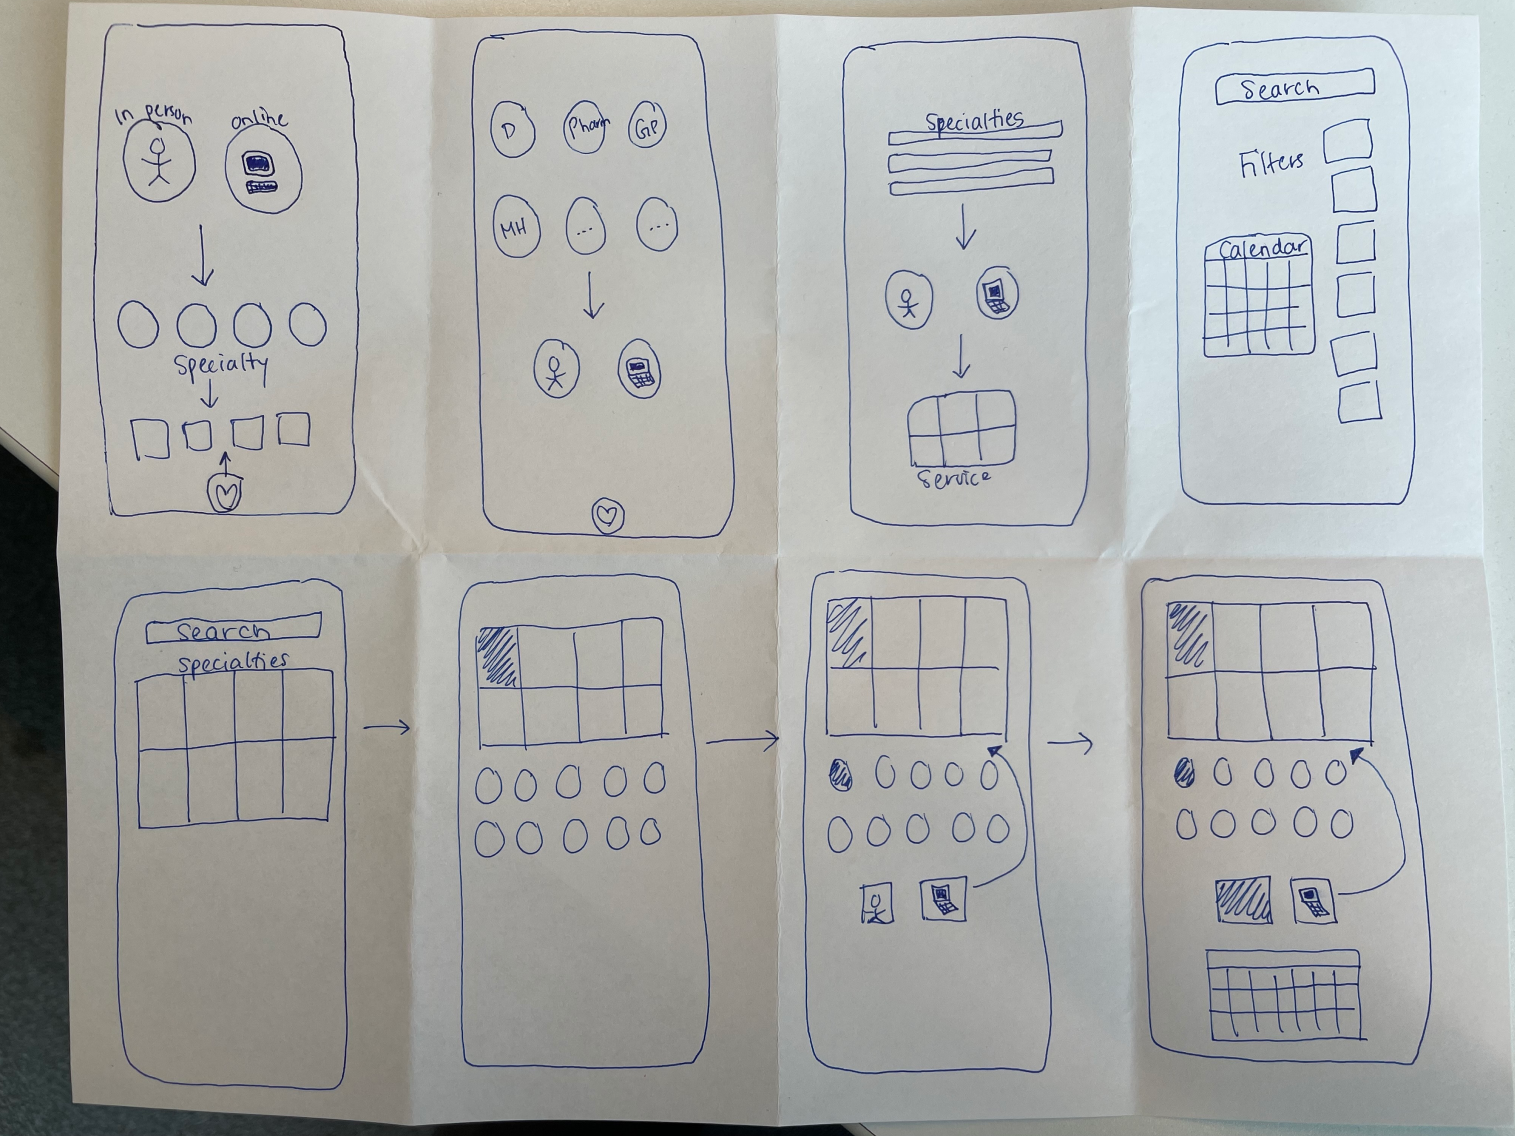 In person
online
Specialty
D
Pharm
GP
MH
...
...
Specialties
Service
Search
Filters
Calendar
Search
Specialties